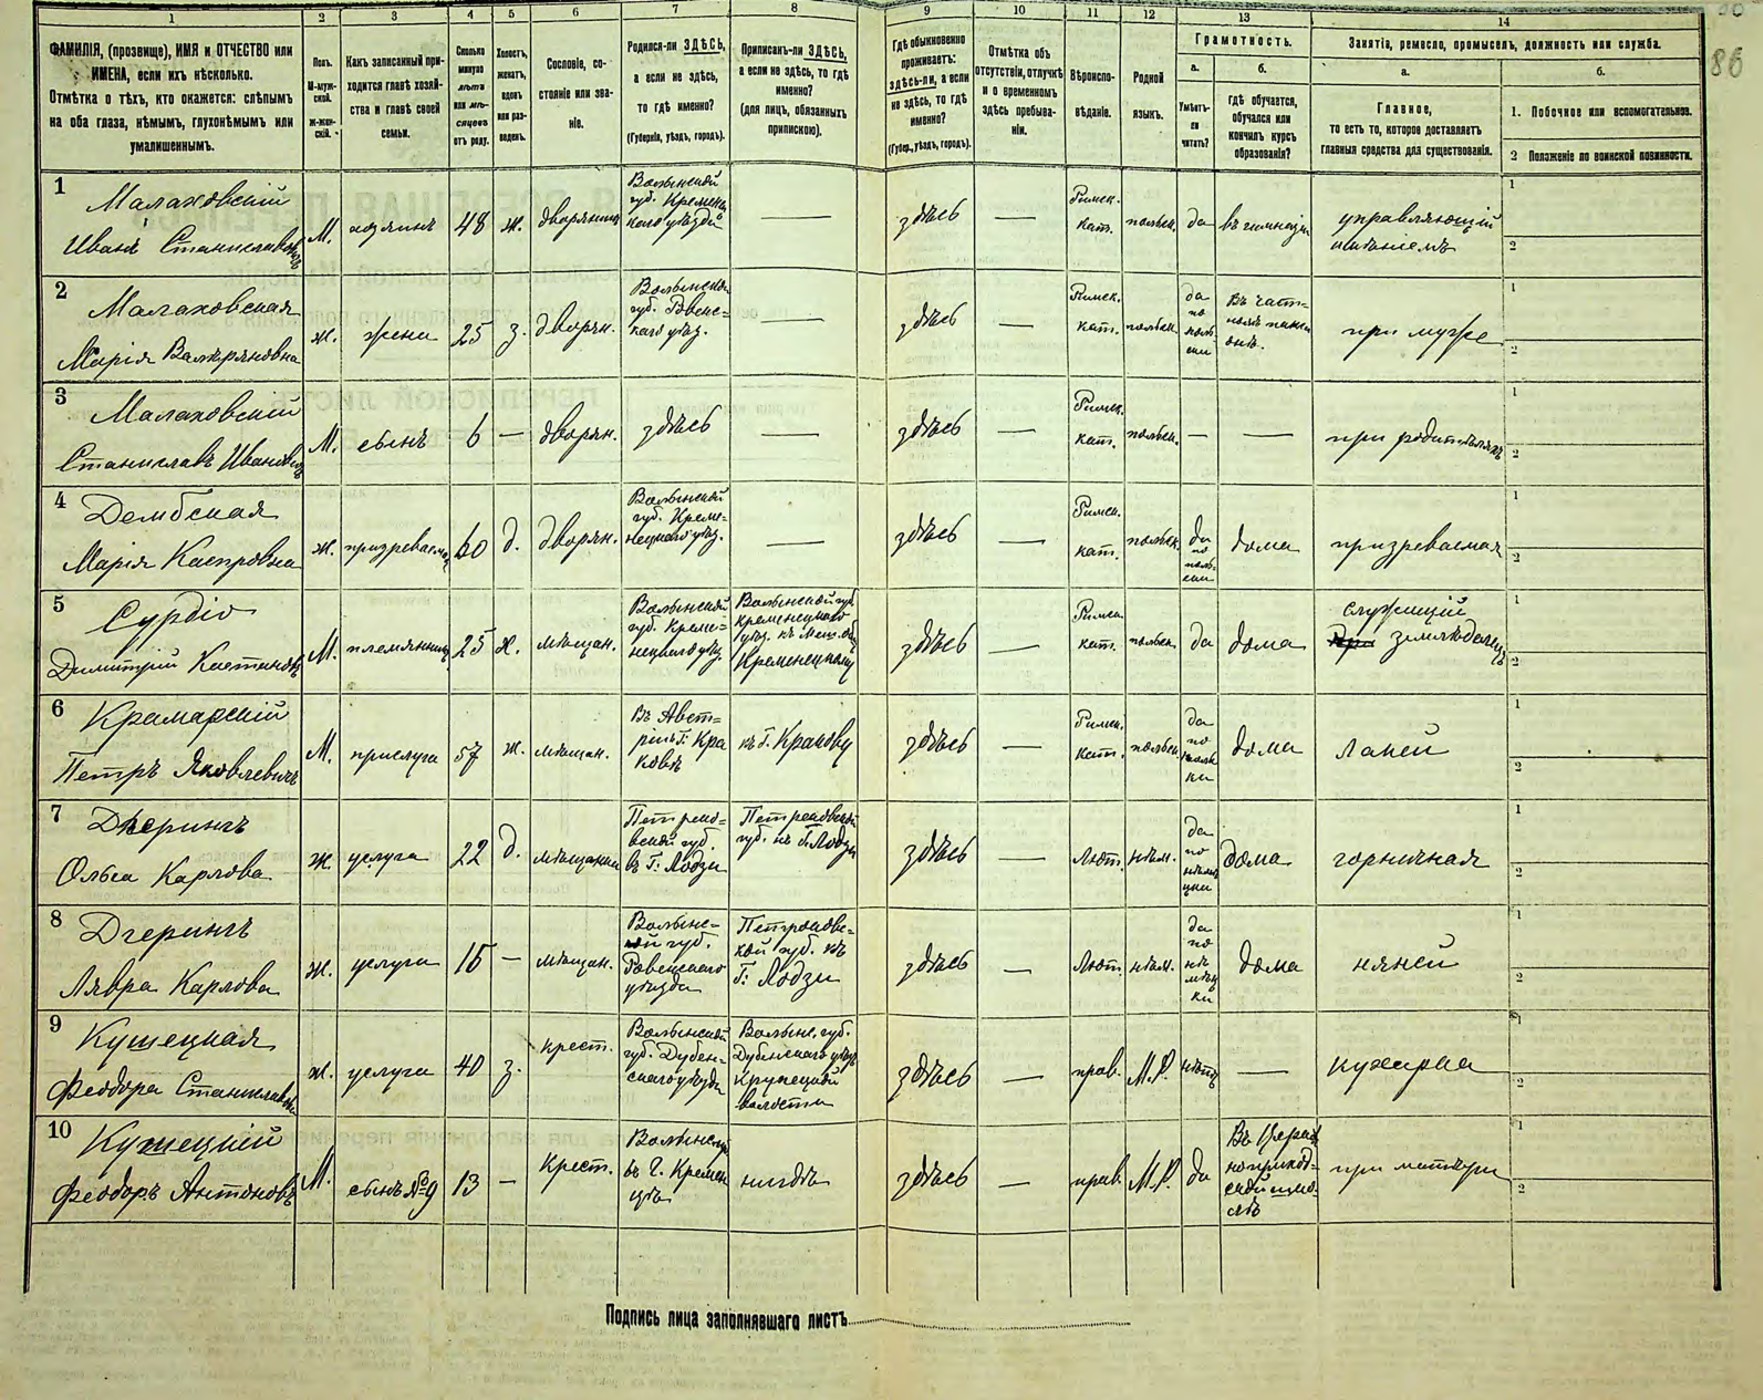 1 2 3 4 5 6 7 8 9 10 11 12 13 14
86
ФАМИЛІЯ, (прозвище), ИМЯ и ОТЧЕСТВО или
ИМЕНА, если ихъ нѣсколько.
Отмѣтка о тѣхъ, кто окажется: слѣпымъ
на оба глаза, нѣмымъ, глухонѣмымъ или
умалишеннымъ.
Полъ.
М-муж-
ской.
ж-жен-
скій.
Какъ записанный при-
ходится главѣ хозяй-
ства и главѣ своей
семьи.
Сколько
минуло
лѣтъ
или мѣ-
сяцевъ
отъ роду.
Холостъ,
женатъ,
вдовъ
или раз-
веденъ.
Сословіе, со-
стояніе или зва-
ніе.
Родился-ли ЗДѢСЬ,
а если не здѣсь,
то гдѣ именно?
(Губернія, уѣздъ, городъ).
Приписанъ-ли ЗДѢСЬ,
а если не здѣсь, то гдѣ
именно?
(для лицъ, обязанныхъ
припискою).
Гдѣ обыкновенно
проживаетъ:
здѣсь-ли, а если
не здѣсь, то гдѣ
именно?
(Губер., уѣздъ, городъ).
Отмѣтка объ
отсутствіи, отлучкѣ
и о временномъ
здѣсь пребыва-
ніи.
Вѣроиспо-
вѣданіе.
Родной
языкъ.
Грамотность.
а.
Умѣетъ-
ли
читать?
б.
Гдѣ обучается,
обучался или
кончилъ курсъ
образованія?
Занятіе, ремесло, промыселъ, должность или служба.
а.
Главное,
то есть то, которое доставляетъ
главныя средства для существованія.
б.
1. Побочное или вспомогательное.
2 Положеніе по воинской повинности.
1 Малаховскій
Иванъ Станиславовичъ
М. хозяинъ 48 ж. дворянинъ
Волынской
губ. Кременец
каго уѣзда
—
здѣсь —
Римск.
кат. польск. да въ гимназіи
управляющій
имѣніемъ
1
2
2 Малаховская
Марія Валерьяновна
ж. жена 25 з. дворян.
Волынской
губ. Ровенс=
каго уѣзд.
—
здѣсь —
Римск.
кат. польск.
да
по
поль
ски
въ част=
номъ пансі
онѣ.
при мужѣ
1
2
3 Малаховскій
Станиславъ Ивановичъ
М. сынъ 6 — дворян. здѣсь — здѣсь —
Римск.
кат. польск. — — при родителяхъ
1
2
4 Дембская
Марія Каспровна
ж. призреваемая 60 д. дворян.
Волынской
губ. Креме=
нецкаго уѣзд.
—
здѣсь —
Римск.
кат. польск.
да
по
поль
ски
дома призреваемая
1
2
5 Сурдіо
Димитрій
М. племянникъ 25 х. мѣщан.
Волынской
губ. Креме=
нецкаго уѣзд.
Волынской губ.
Кременецкаго
уѣзд. къ Мещ. общ
Кременецкому
здѣсь —
Римск.
кат. польск. да дома
служащій
при земледѣлиц
1
2
6 Крамарскій
Петръ Яковлевичъ
М. прислуга 57 ж. мѣщан.
Въ Авст=
ріи г. Кра
ковѣ
къ г. Кракову
здѣсь —
Римск.
кат. польск.
да
по
поль
ки
дома лакей
1
2
7 Дгерингъ
Ольга Карлова
ж. услуга 22 д. мѣщанка
Петроко=
вской губ.
въ г. Лодзи
Петроковской
губ. къ г. Лодзи
здѣсь — Лют. нѣм.
да
по
нѣме
цки
дома горничная
1
2
8 Дгерингъ
Лявра Карлова
ж. услуга 15 — мѣщан.
Волынс=
кой губ.
Ровенскаго
уѣзда
Петроковс=
кой губ. къ
г. Лодзи
здѣсь — Лют. нѣм.
да
по
нѣ
мец
ки
дома няней
1
2
9 Кушецкая
Феодора Станиславова
ж. услуга 40 з. крест.
Волынской
губ. Дубен=
скаго уѣзда
Волынс. губ.
Дубенскаго уѣзд.
Крупецкой
волости
здѣсь — прав. М.Р. нѣтъ — кухарка
1
2
10 Кушецкій
Феодоръ Антоновъ
М. сынъ №9 13 — Крест.
Волынской
въ г. Кремен
цѣ
нигдѣ здѣсь — прав. М.Р. да
Въ Церков
ноприход=
ской шко=
лѣ
при матери
1
2
Подпись лица заполнявшаго листъ